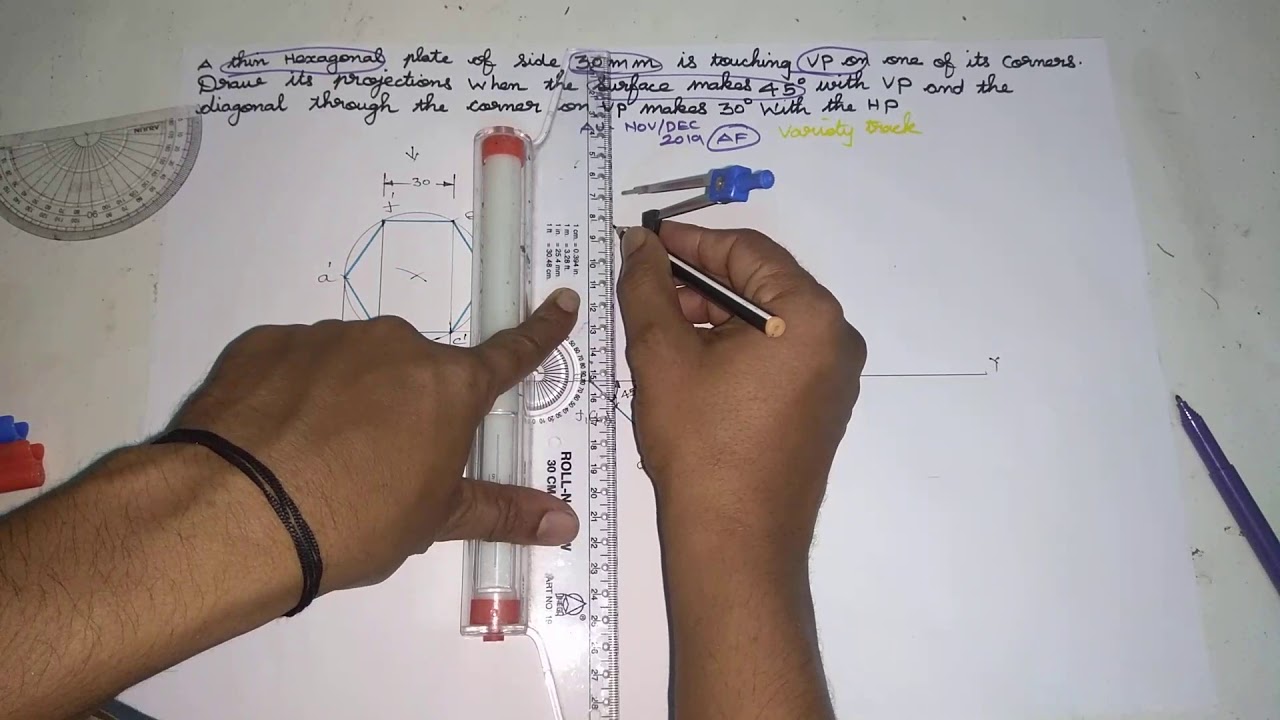 A thin Hexagonal plate of side 30mm is touching VP on one of its corners.
Draw its projections When the surface makes 45° with VP and the
diagonal through the corner on VP makes 30° With the HP
NOV/DEC
2019 AF Variaty track
30
f'
a'
c'
Y
45
1 cm. = 0.394 in.
1 m. = 3.28 ft.
1 in. = 25.4 mm
1 ft. = 30.48 cm.
ROLL-N
30 CM
ART NO. 19